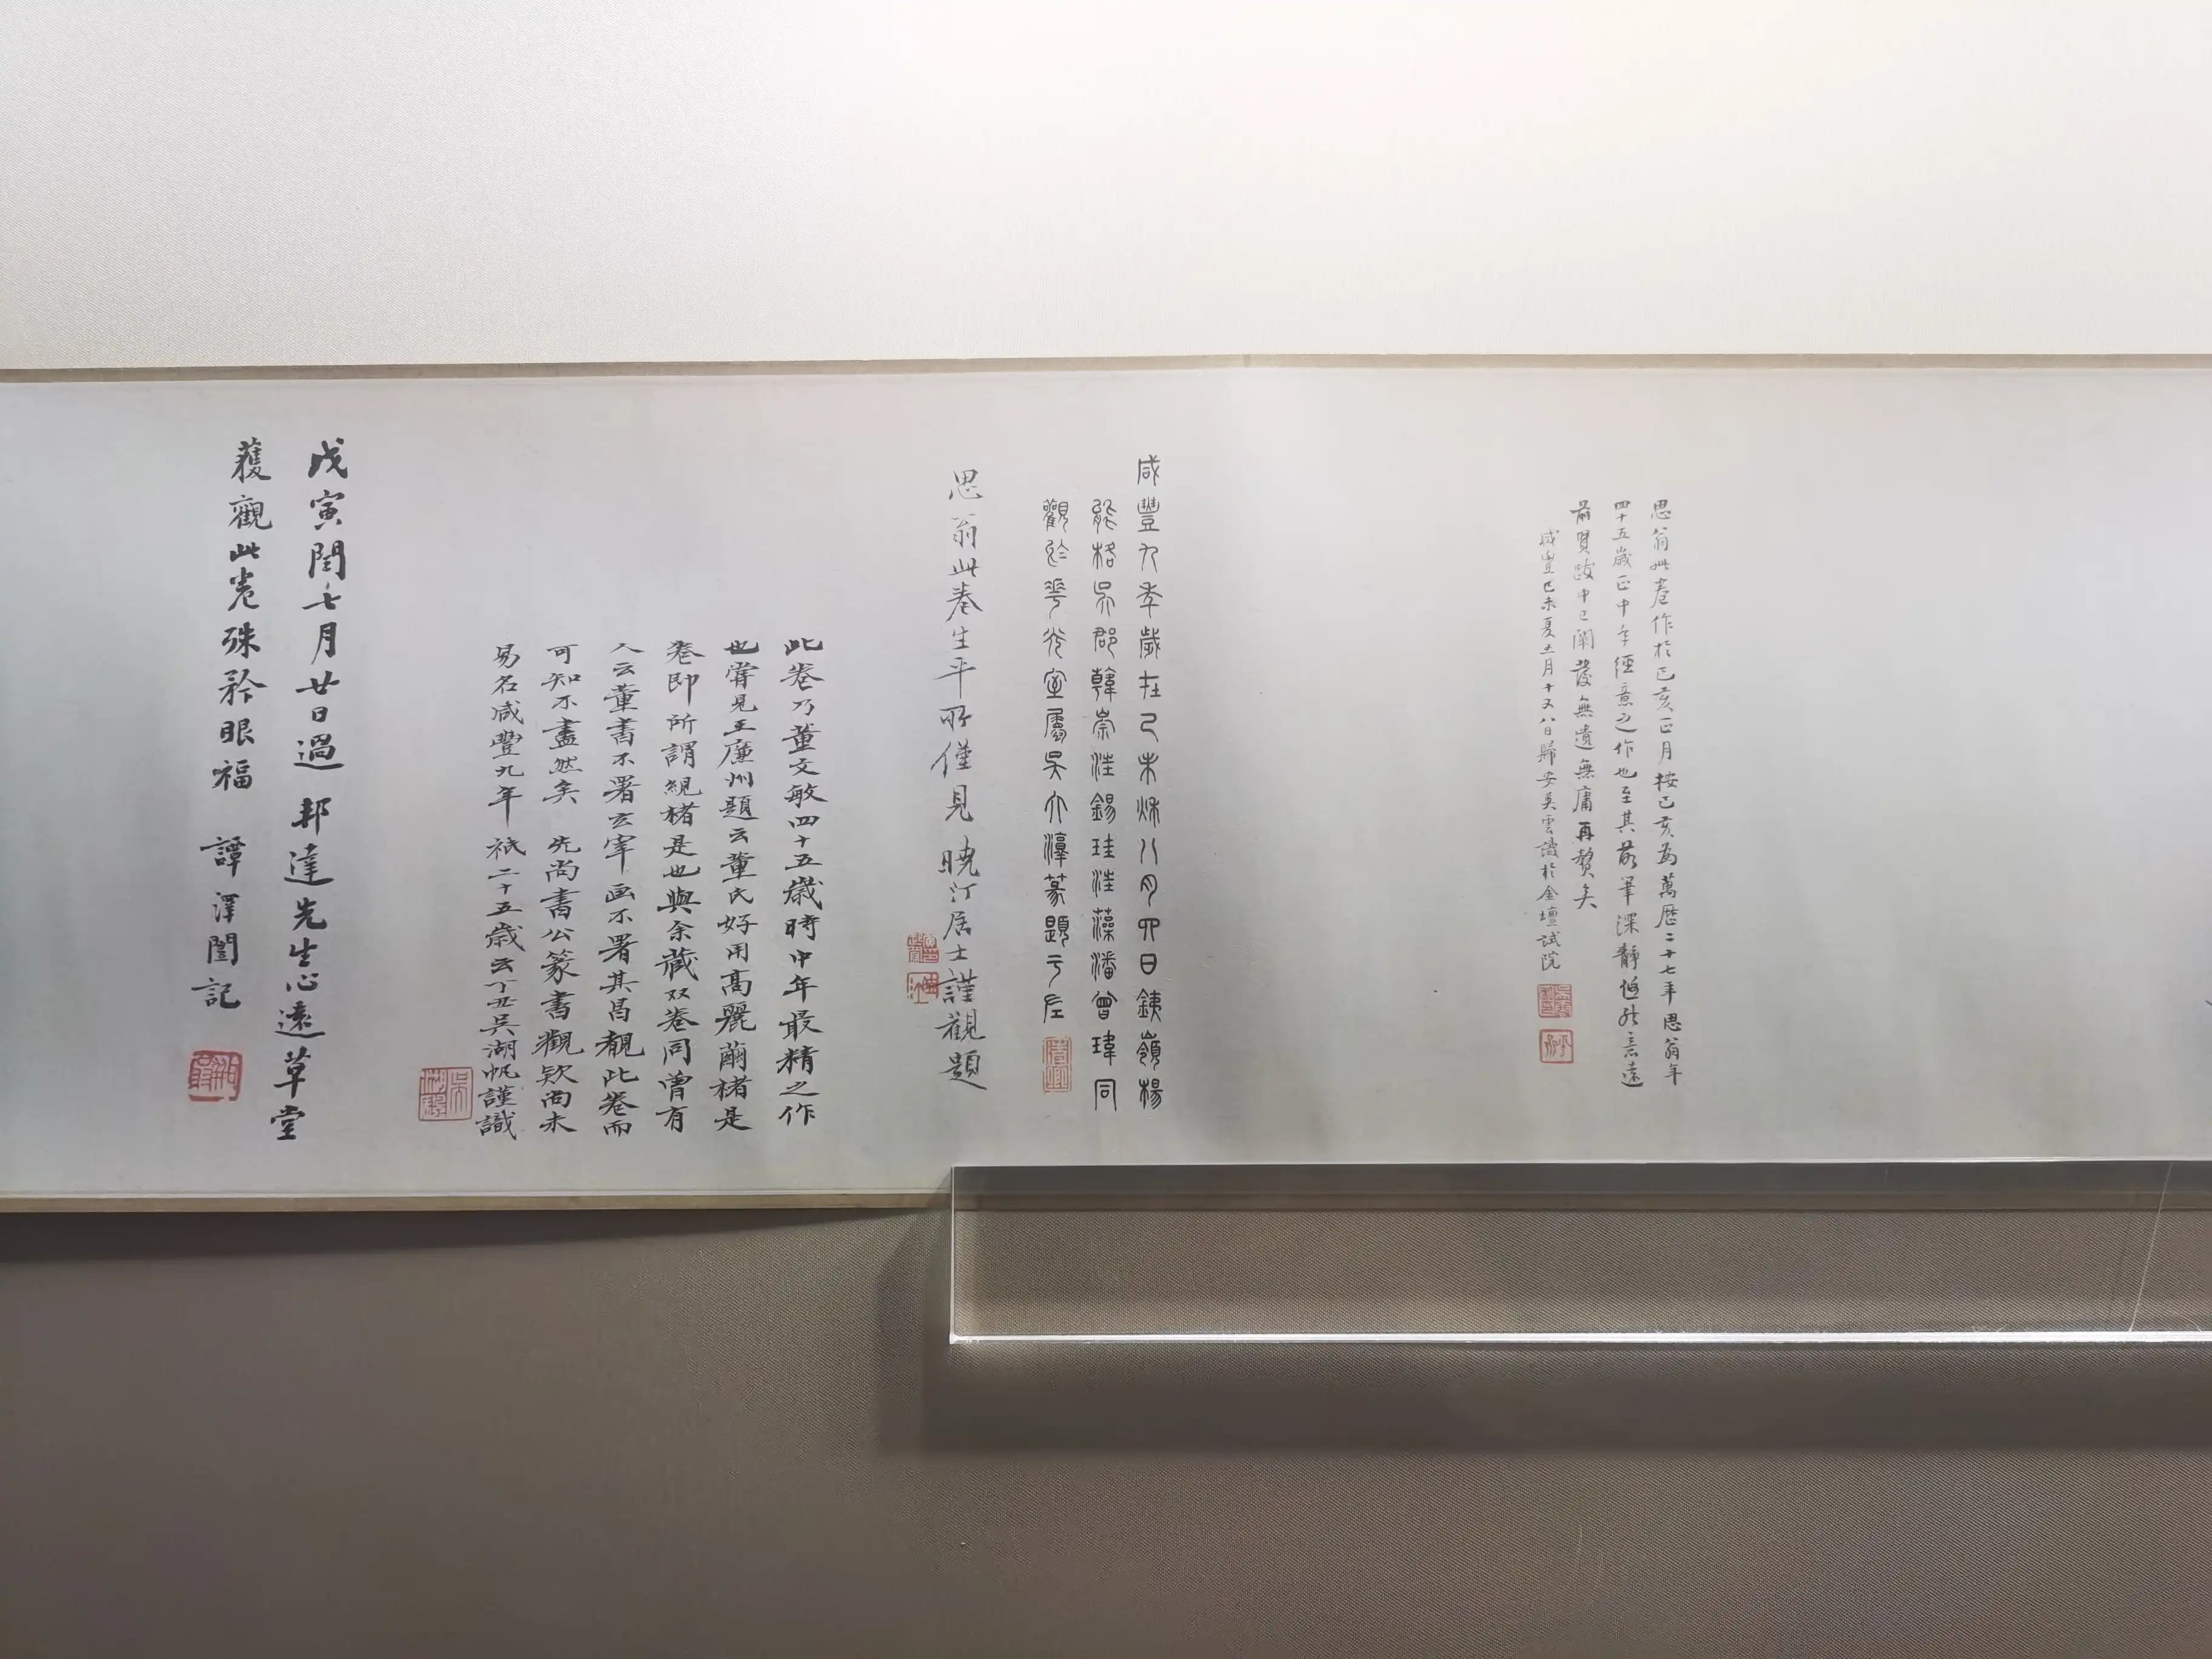 思翁此卷作於己亥正月按己亥為萬曆二十七年思翁年
四十五歲正中年經意之作也至其筆深靜意遠
前賢跋中已闡發無遺無庸再贅矣
咸豐己未夏五月十又八日歸安吳雲識於金壇試院
咸豐九季歲在己未秌八月四日鐵嶺楊
能格吳郡韓崇汪錫珪汪藻潘曾瑋同
觀於室屬吳大澂篆題于左
思翁此卷生平所僅見 曉汀居士謹觀題
此卷乃董文敏四十五歲時中年最精之作
也嘗見王廉州題云董氏好用高麗繭楮是
卷即所謂規楮是也與余藏双卷同曾有
人云董書不署玄宰画不署其昌觀此卷而
可知不盡然矣 先尚書公篆書觀欵尚未
易名咸豐九年 祇二十五歲云丁丑吳湖帆謹識
戊寅閏七月廿日過 邦達先生心遠草堂
獲觀此卷殊矜眼福 譚澤闓記